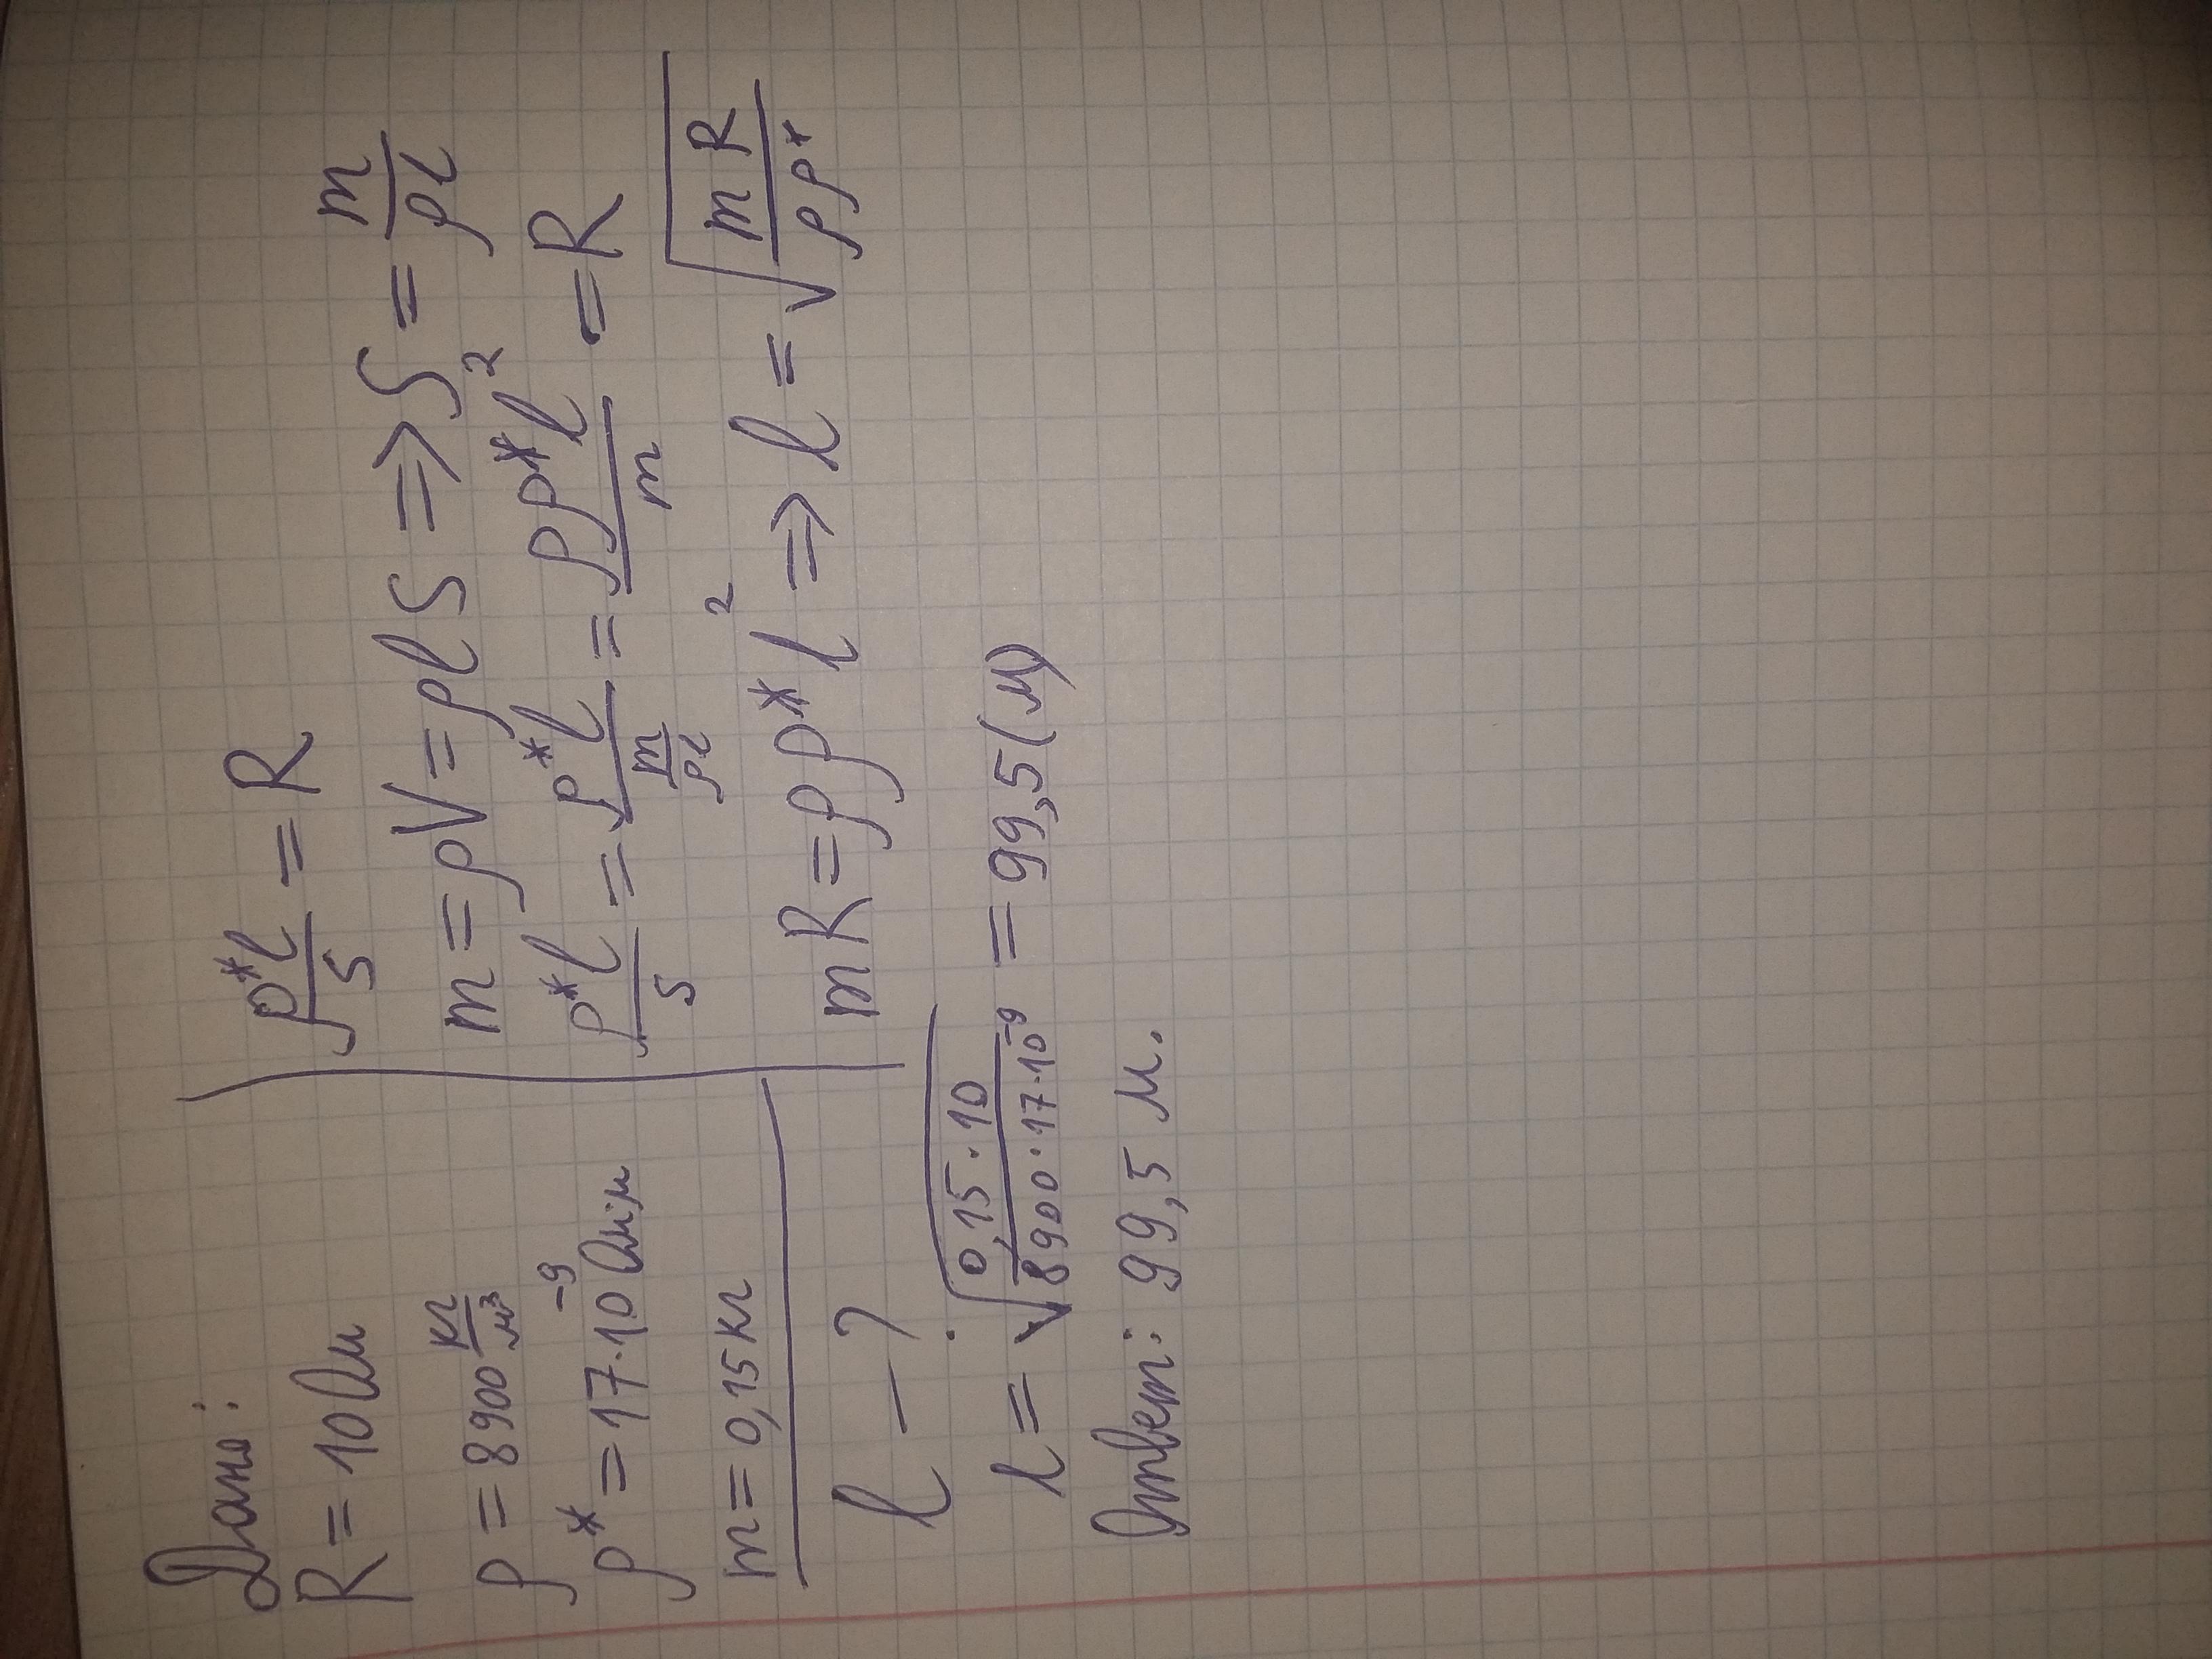 Дано:
R = 10 Ом
ρ = 8900 кг/м³
ρ* = 17·10⁻⁹ Ом·м
m = 0,15 кг
l — ?
ρ*l/S = R
m = ρV = ρlS ⇒ S = m/ρl
ρ*l/S = ρ*l/(m/ρl) = ρρ*l²/m = R
mR = ρρ*l² ⇒ l = √(mR/ρρ*)
l = √(0,15·10/8900·17·10⁻⁹) = 99,5 (м)
Ответ: 99,5 м.